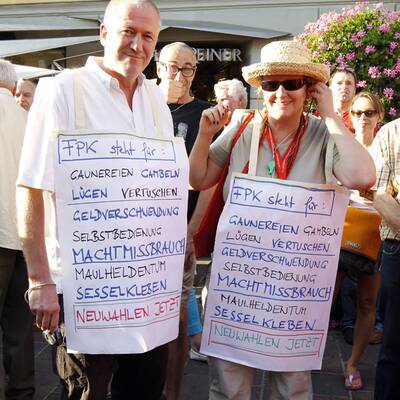 REINER
FPK steht für:
GAUNEREIEN GAMBELN
LÜGEN VERTUSCHEN
GELDVERSCHWENDUNG
SELBSTBEDIENUNG
MACHTMISSBRAUCH
MAULHELDENTUM
SESSELKLEBEN
NEUWAHLEN JETZT
FPK steht für:
GAUNEREIEN GAMBELN
LÜGEN VERTUSCHEN
GELDVERSCHWENDUNG
SELBSTBEDIENUNG
MACHTMISSBRAUCH
MAULHELDENTUM
SESSELKLEBEN
NEUWAHLEN JETZT